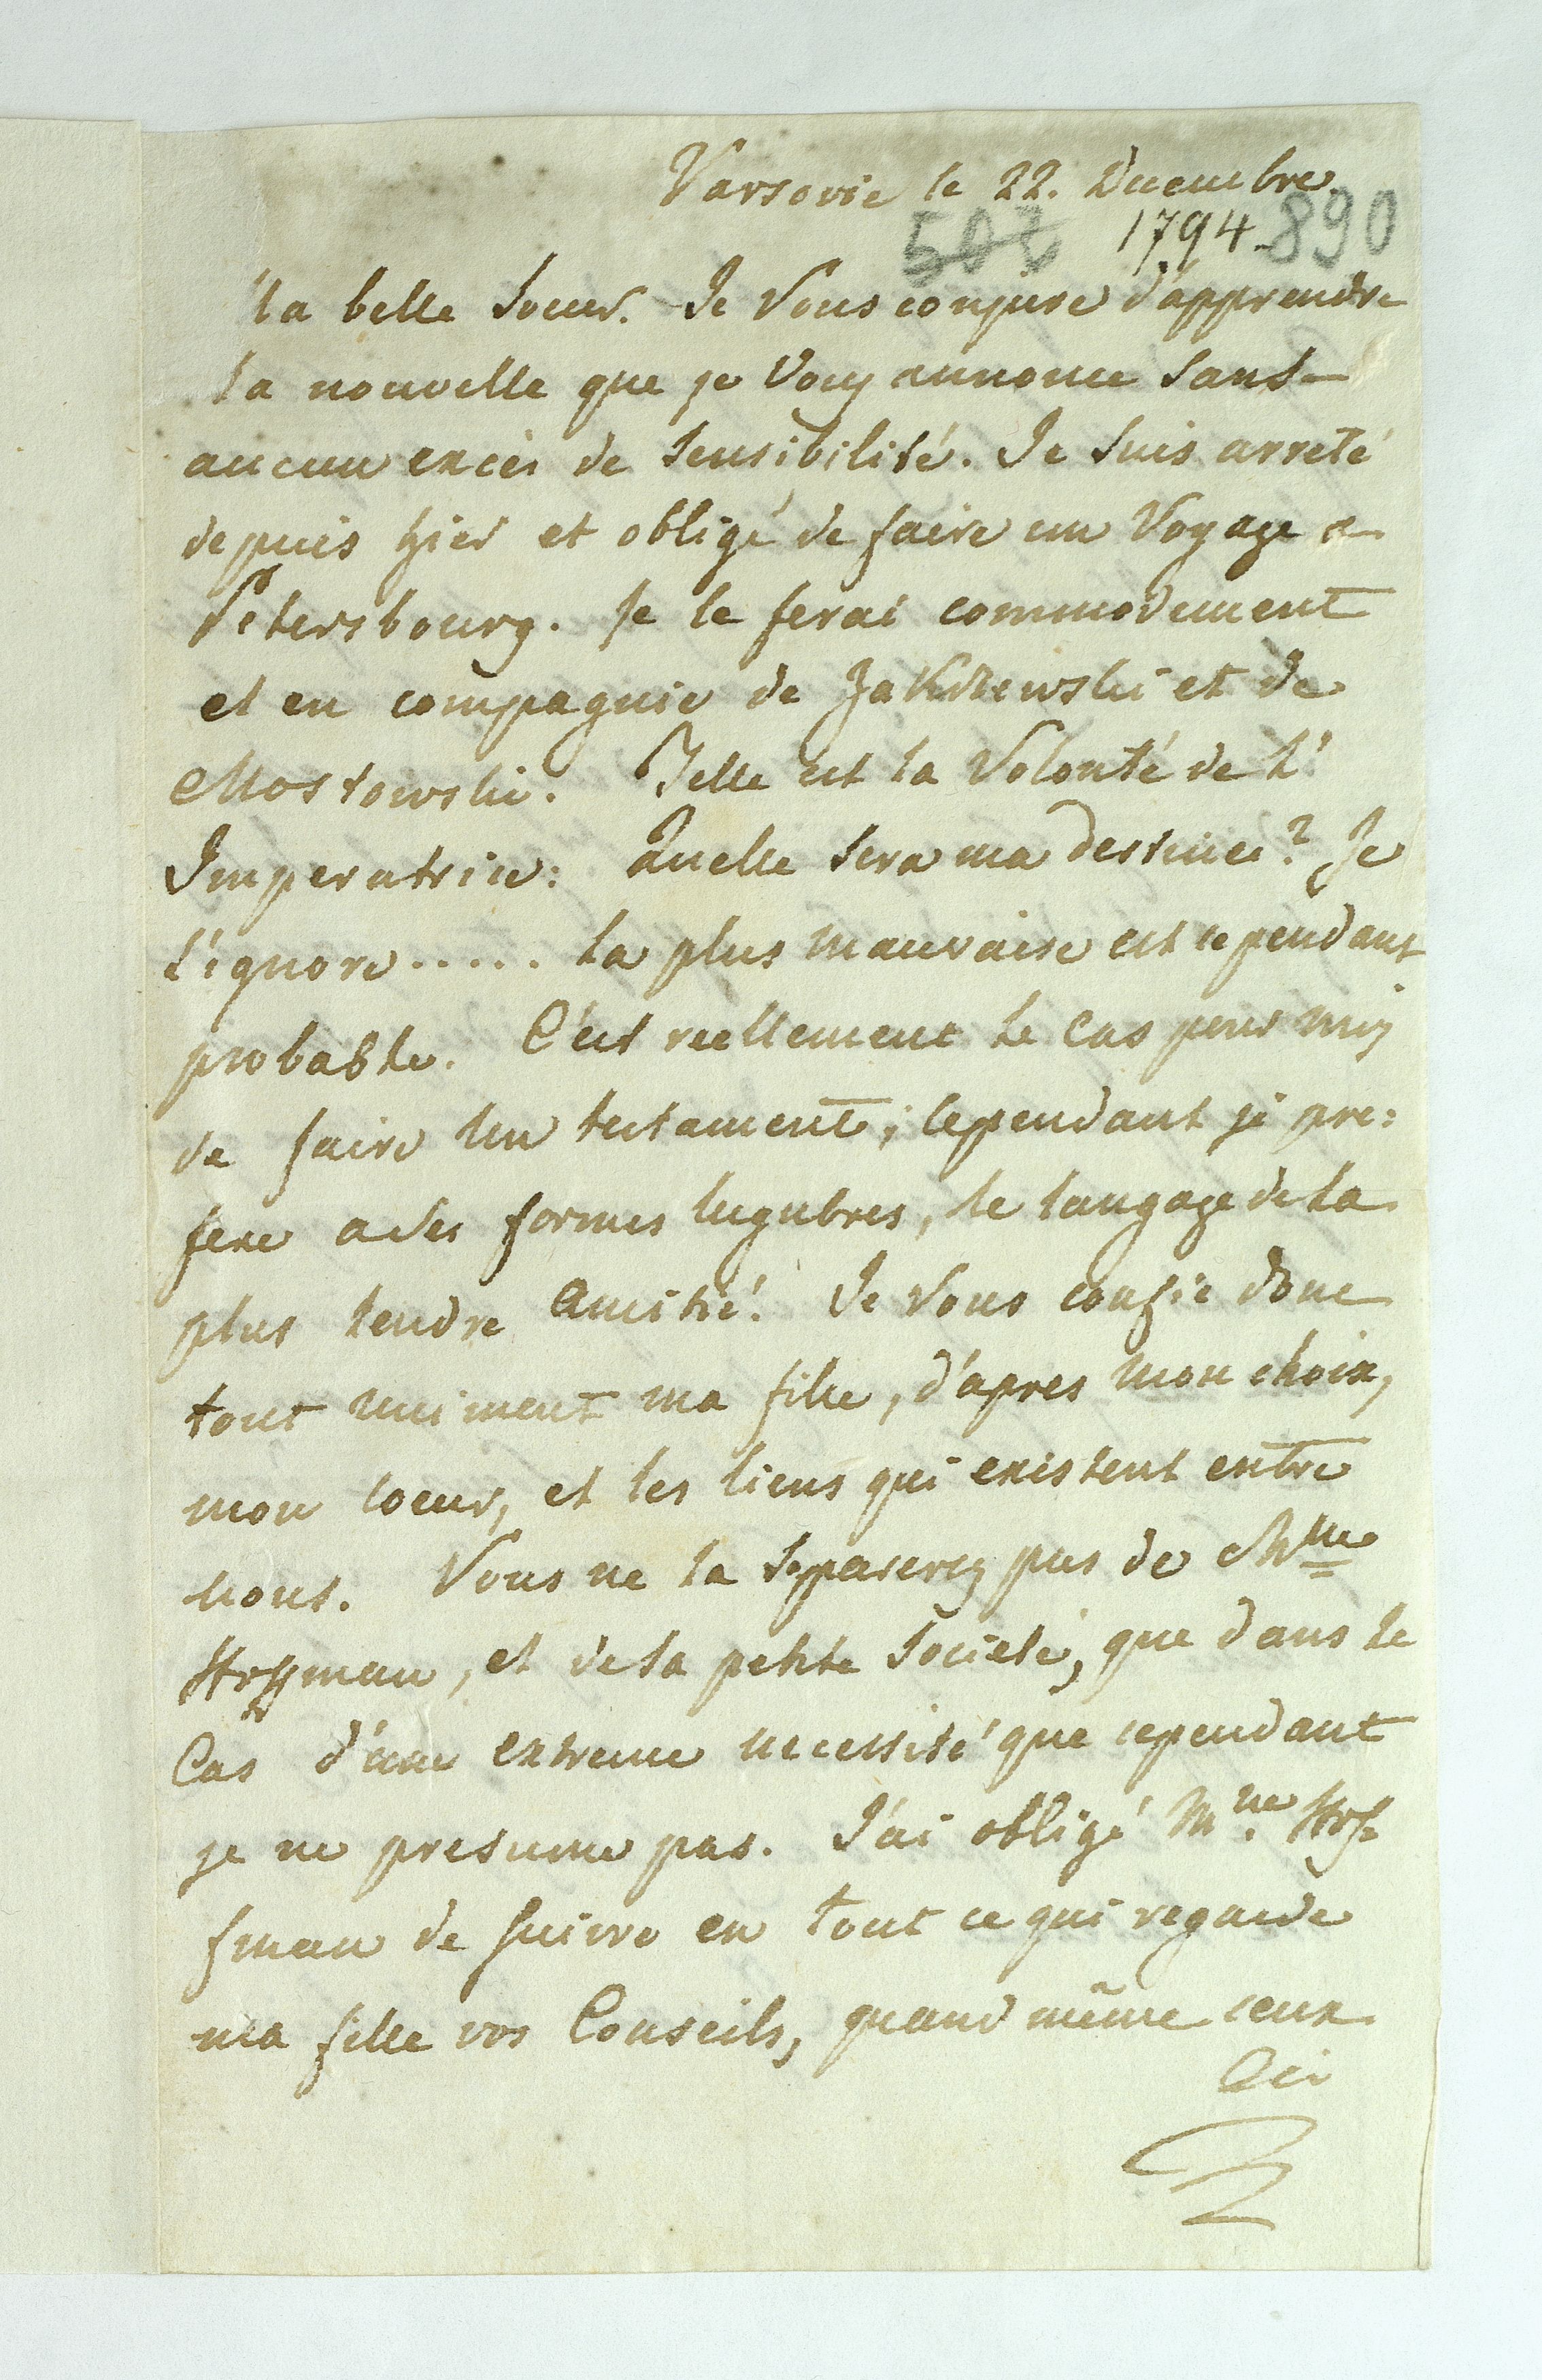 Varsovie le 22. Decembre
507 1794. 890
Ma belle Soeur. Je Vous conjure d'apprendre
la nouvelle que je Vous annonce Sans
aucun excès de Sensibilité. Je Suis arreté
depuis hier et obligé de faire un Voyage a
Petersbourg. Je le ferai commodement
et en compagnie de Zakrzewski et de
Mostowski. Telle est la Volonté de L'
Imperatrice: Quelle Sera ma destinée? Je
l'ignore..... la plus mauvaise est cependant
probable. C'est reellement le Cas pour moy
de faire Un testament; cependant je pre:
fere a des formes lugubres, le langage de la
plus tendre Amitié! Je Vous confie donc
tout uniment ma fille, d'apres mon choix,
mon Coeur, et les liens qui existent entre
nous. Vous ne la Separerez pas de Mme
Hoffman, et de la petite Societé, que dans le
Cas d'une extreme necessité que cependant
je ne presume pas. J'ai obligé Mme. Hof-
fman de Suivre en tout ce qui regarde
ma fille vos Conseils, quand même ceux
Ci